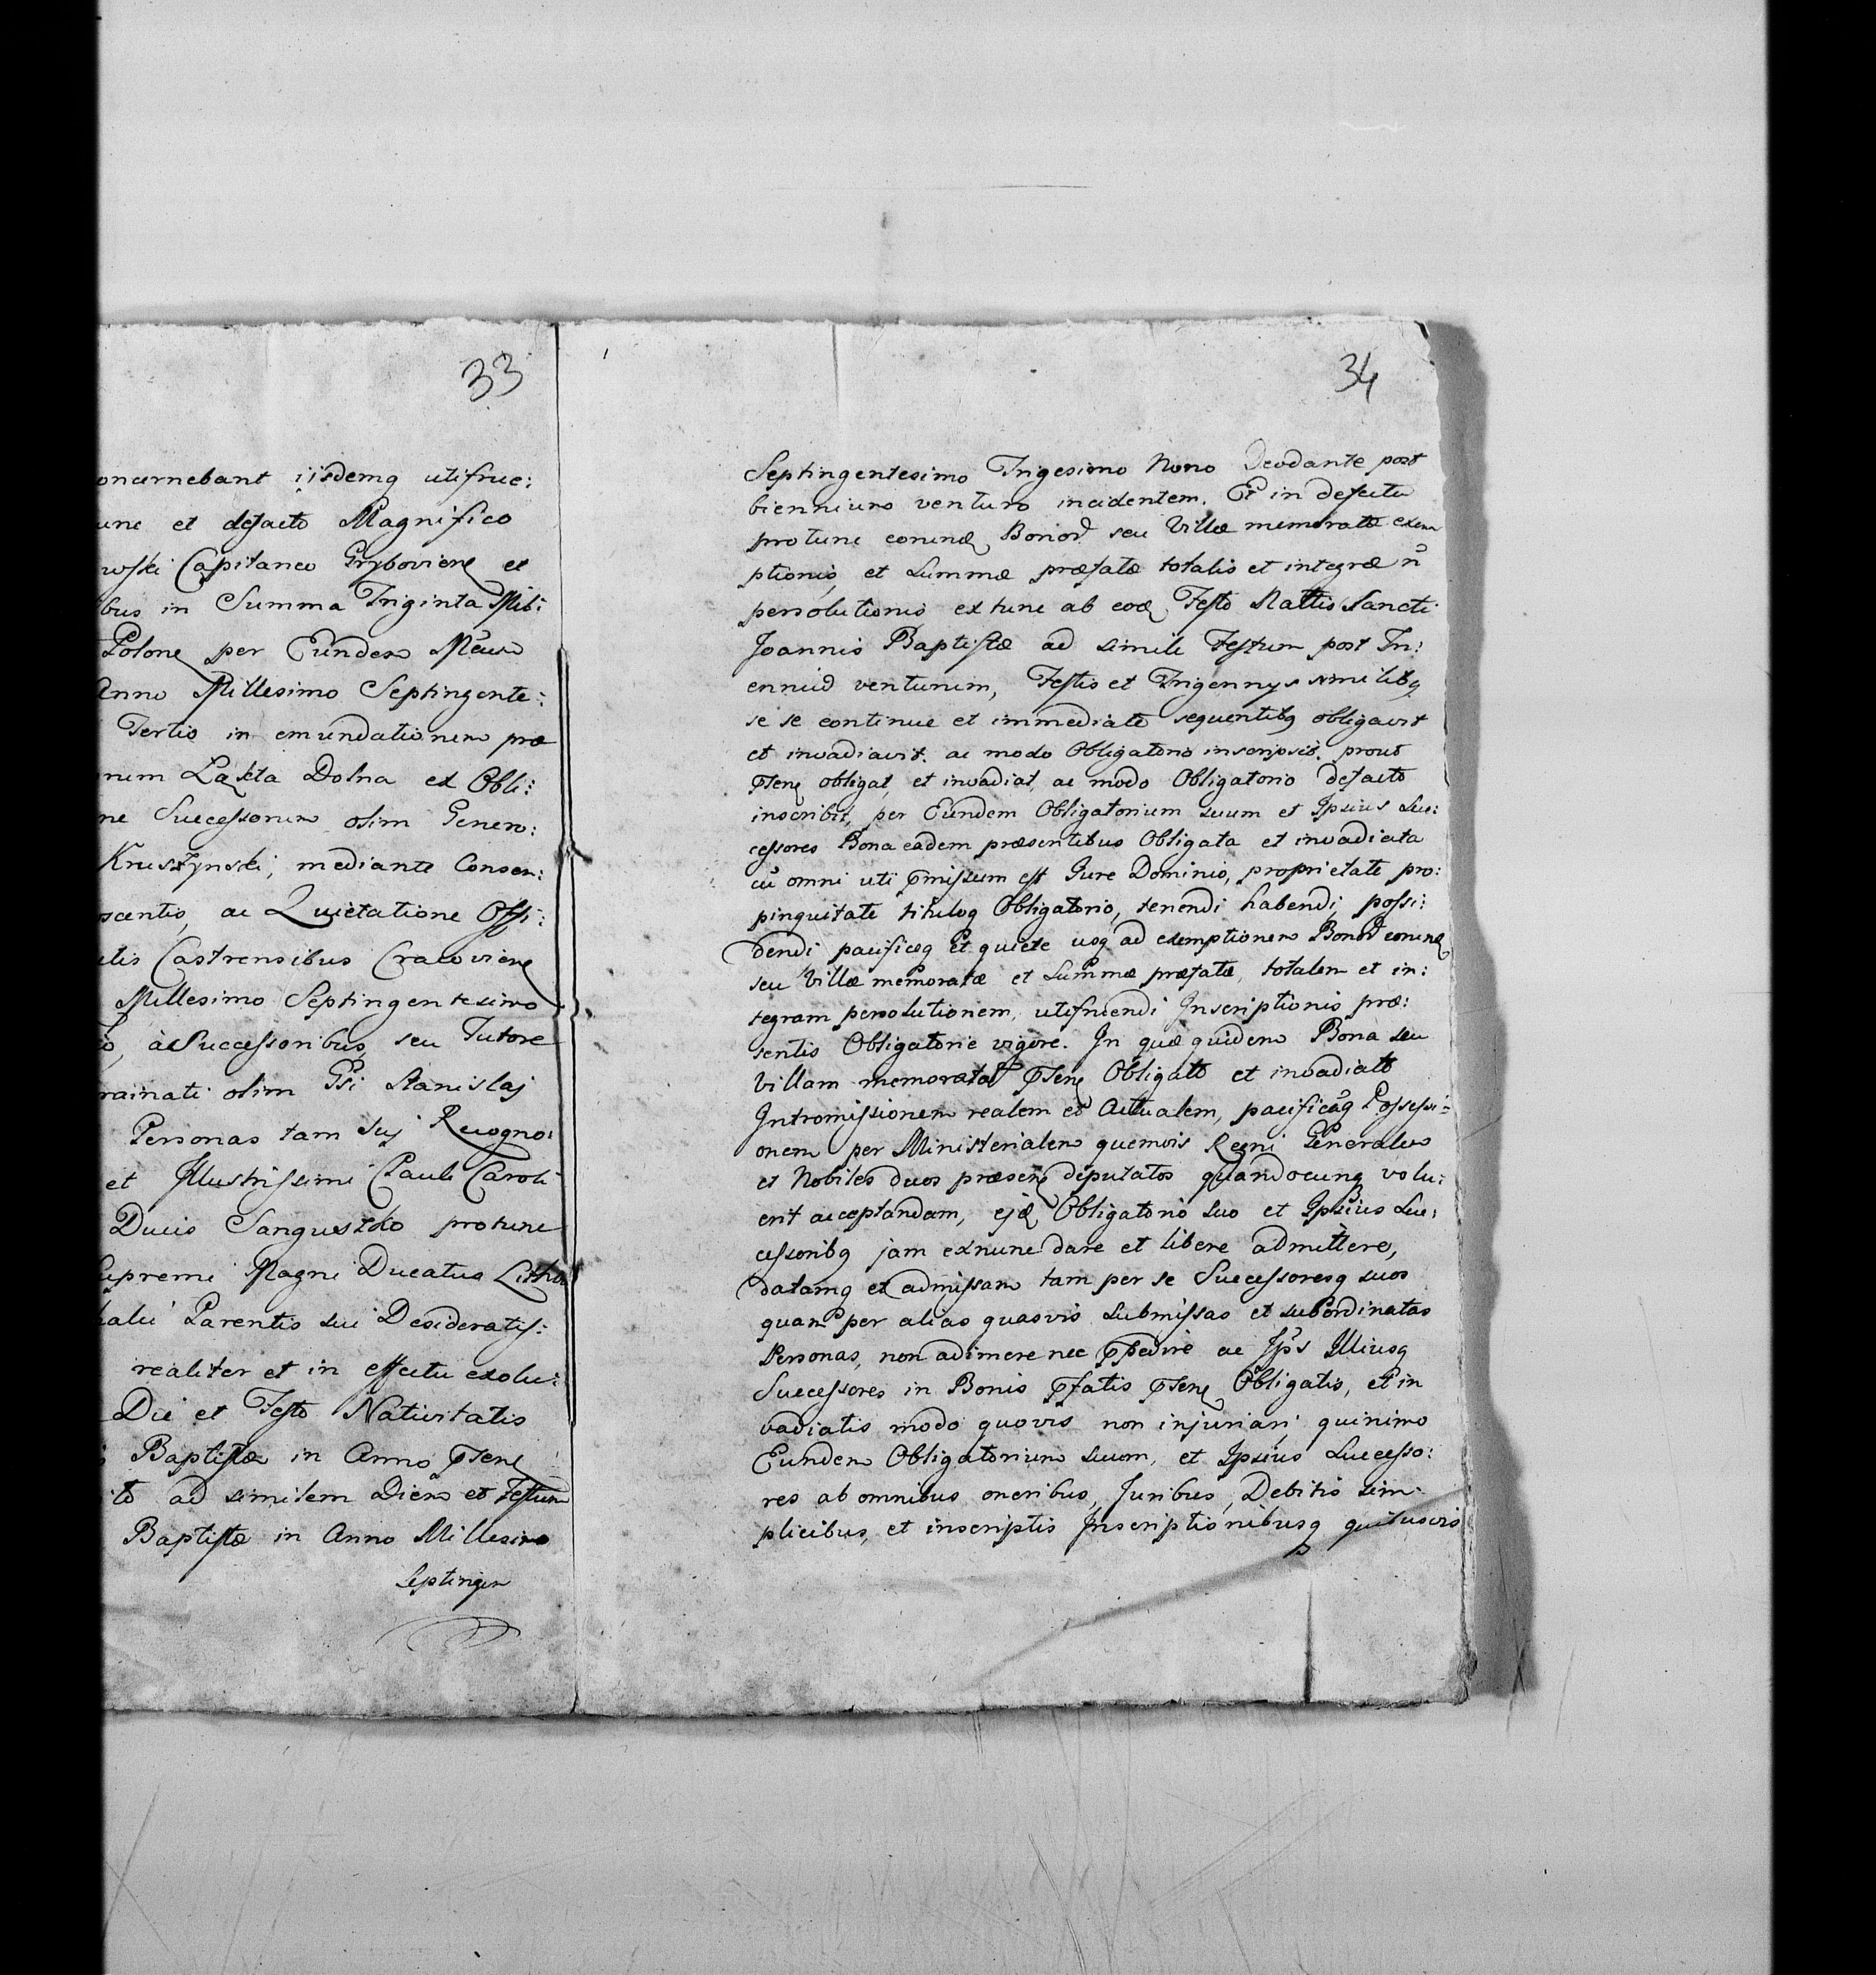 33
oncernebant iisdemq utifrue:
unc et defacto Magnifico
wski Capitaneo Grybovien et
bus in Summa Triginta Mil:
Polon per Eundem
Anno Millesimo Septingente:
Tertio in emundationem præ
Dolna ex Obli:
ne Successorum olim Genero:
Kruszynski, mediante Consen:
scentis, ac Quietatione Offi:
Castrensibus Cracovien
Millesimo Septingentesimo
o, à Successoribus seu Tutore
olim Stanislaj
Personas tam suj Recogno:
et Illustrissimi Pauli Caroli
Ducis Sanguszko protunc
upremi Magni Ducatus Lithu
Parentis sui Desideratis:
realiter et in effectu exolu:
Die et Festo Nativitatis
Baptistæ in Anno Psen
ad similem Diem et Festum
Baptistæ in Anno Millesimo
Septingen
34
Septingentesimo Trigesimo Nono Deodante post
biennium venturo incidentem. Et in defectu
protunc eorund Bonor seu Villæ memoratæ exem
ptionis, et Summæ præfatæ totalis et integræ ñ
persolutionis extunc ab eod Festo Nattis Sancti
Joannis Baptistæ ad simile Festum post Tri:
ennium venturum, Festis et Triennys similibq
se se continue et immediate sequentibq obligavit
et invadiavit. ac modo Obligatorio inscripsit. prout
Psen obligat, et invadiat, ac modo Obligatorio defacto
inscribit, per Eundem Obligatorium suum et Ipsius Suc:
cessores Bona eadem præsentibus Obligata et invadiata
cũ omni uti Pmissum est Jure Dominio, proprietate pro:
pinquitate tituloq Obligatorio, tenendi habendi, possi:
dendi pacificeq et quiete usq ad exemptionem Bonor eorund
seu Villæ memoratæ et Summæ præfatæ, totalem et in:
tegram persolutionem, utifruendi Inscriptionis præ:
sentis Obligatoriæ vigore. In quæ quidem Bona seu
Villam memoratã Psen Obligatt et invadiatt
Intromissionem realem et Actualem, pacificãq Possessi:
onem per Ministerialem quemvis Regni Generalem
et Nobiles duos præsen deputatos quandocunq volu:
erit acceptandam, ejd Obligatorio suo et Ipsius Suc:
cessoribq jam exnunc dare et libere admittere,
datamq et admissam tam per se Successoresq suos
quam per alias quasvis submissas et subordinatas
Personas, non adimere nec Ppedire ac Ips Illiusq
Successores in Bonis Pfatis Psen Obligatis, et in
vadiatis modo quovis non injuriari, quinimo
Eundem Obligatorium suum, et Ipsius Successo:
res ab omnibus oneribus, Juribus, Debitis sim:
plicibus, et inscriptis Inscriptionibusq quibusvis